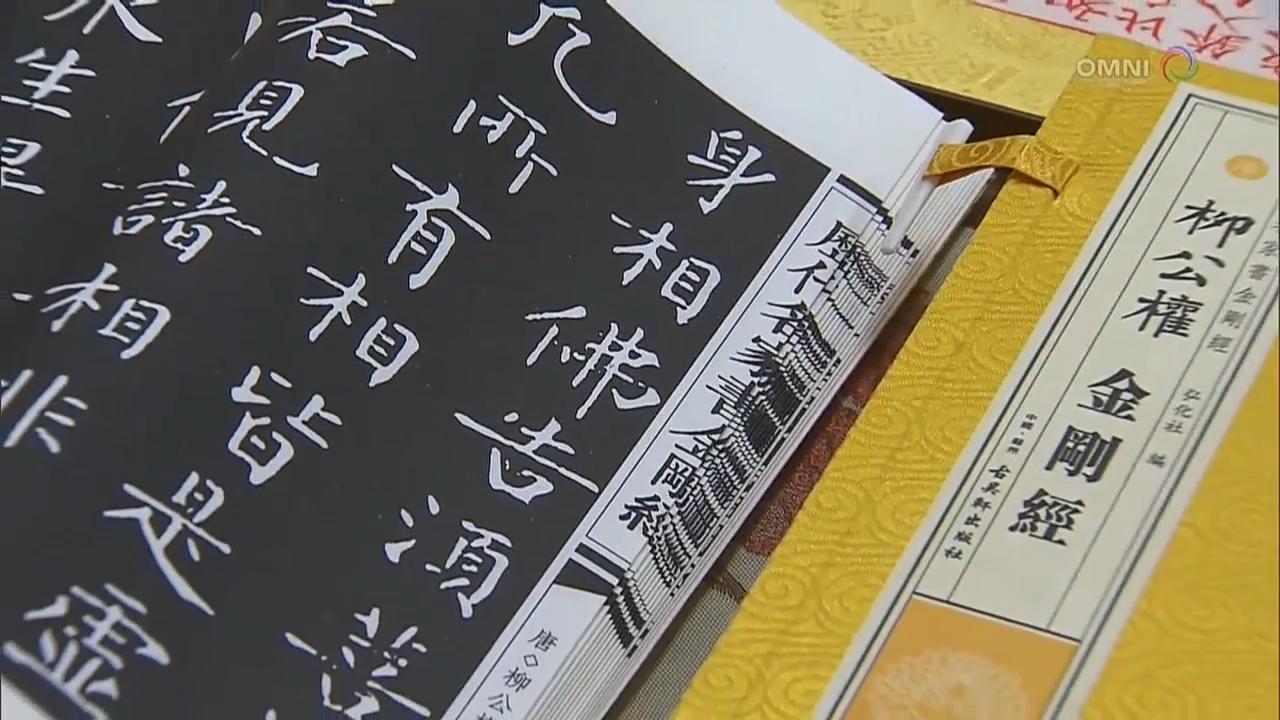 OMNI
身相佛告須菩
凡所有相皆是虛
若見諸相非
生
歷代名家書金剛經
唐◇柳公
家書金剛經 弘化社 編
柳公權 金剛經
中國·蘇州 古吳軒出版社